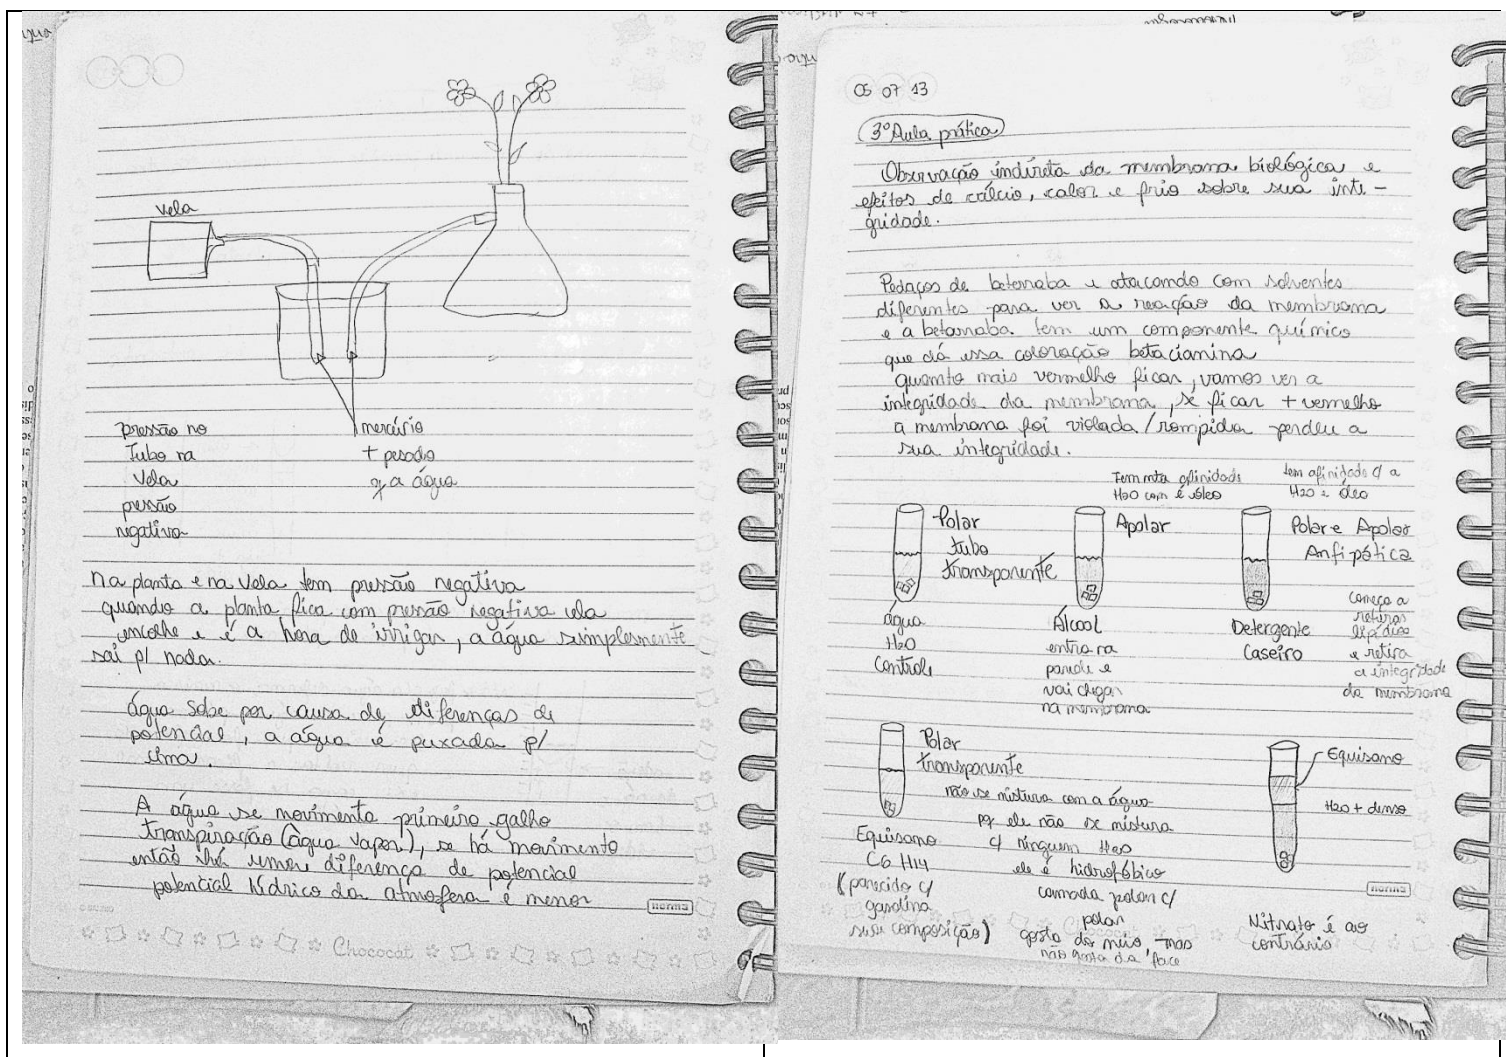 Vela
pressão no
tubo na
Vela
pressão
negativa
mercúrio
+ pesado
q a água
na planta e na Vela tem pressão negativa
quando a planta fica com pressão negativa ela
encolhe e é a hora de irrigar, a água simplesmente
sai p/ nada.
água sobe por causa de diferenças de
potencial, a água é puxada p/
cima.
A água se movimenta primeiro galho
transpiração (água vapor), se há movimento
então há uma diferença de potencial
potencial hídrico da atmosfera é menor
norma
Chococat
05 07 13
3º Aula prática
Observação indireta da membrana biológica e
efeitos de cálcio, calor e frio sobre sua inte-
gridade.
Pedaços de beterraba e atacando com solventes
diferentes para ver a reação da membrana
e a beterraba tem um componente químico
que dá essa coloração betacianina
quanto mais vermelho ficar, vamos ver a
integridade da membrana, se ficar + vermelho
a membrana foi violada/rompida perdeu a
sua integridade.
Tem mta afinidade
H2O com é óleo
tem afinidade c/ a
H2O e óleo
Polar
tubo
transparente
água
H2O
Controle
Apolar
Álcool
entra na
parede e
vai chegar
na membrana
Polar e Apolar
Anfipática
Detergente
Caseiro
começa a
retirar
lipídios
e retira
a integridade
da membrana
Polar
transparente
não se mistura com a água
pq ele não se mistura
c/ ninguem H2O
ele é hidrofóbico
camada polar c/
polar
gosta do meio, mas
não gosta da face
Equisano
C6 H14
(parecido c/
gasolina
sua composição)
Equisano
H2O + denso
Nitrato é ao
contrário
norma